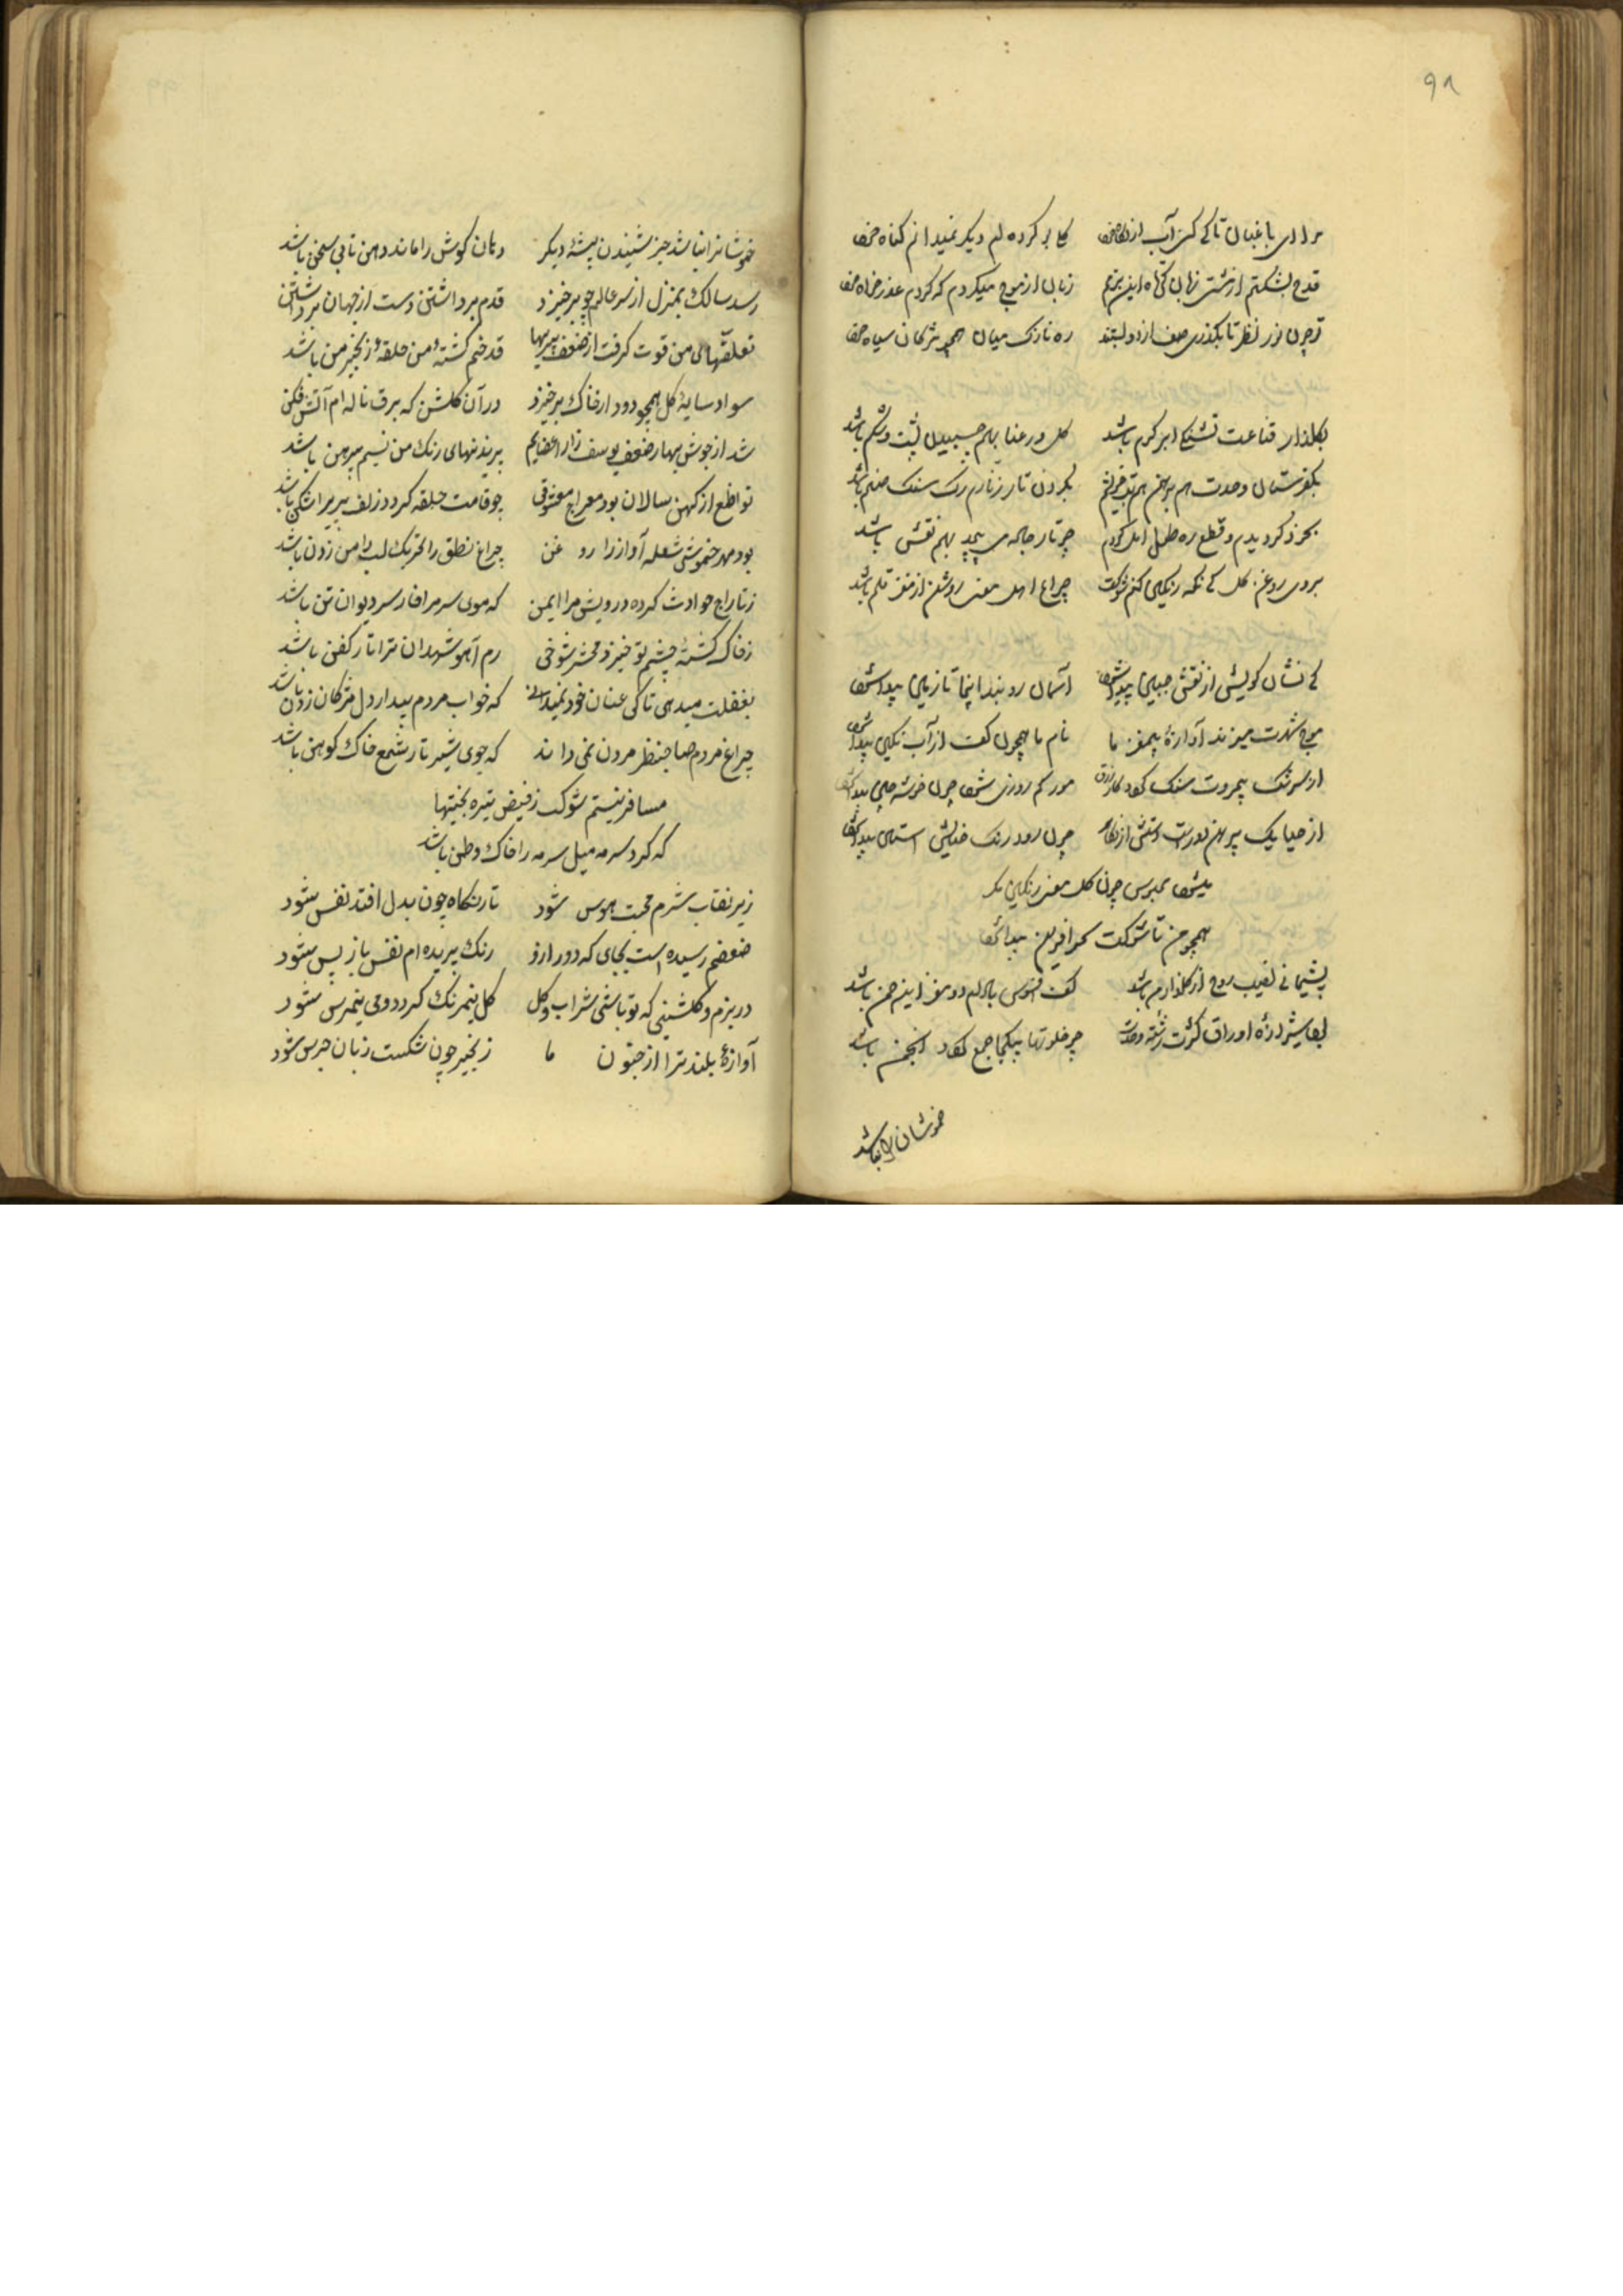 ۹۸
مرا ای باغبان تا کی کنی آب از نگاه خود گلی بو کرده ام دیگر نمیدانم گناه خود
قدح بشکستم از مستی زبان از موج میکردم که کردم عذر خواه خود
چون نور نظر تا بگذری صف از دو ره نازک میان همچو مژگان سیاه خود
بگلزار قناعت تشنگی ابر کرم باشد گل رعنا بهم چسپیدن پشت و شکم باشد
وحدت هم برهمن هم بگردن تار زنارم رگ سنگ صنم باشد
بخود گردیدم و قطع ره طول امل کردم چو تار جامه می پیچد بهم نقش باشد
بروی روغن گل کی نگه رنگین کنم شوکت چراغ اهل معنی روشن از مغز قلم باشد
کی نشان کویش از نقش جبین پیدا شود آسمان رو تا زمین پیدا شود
موج شهرت میزند آوازهٔ بیمغز ما نام ما همچون کف از آب نگین پیدا شود
از بیمروت سنگ مور کم روزی شود چون خوشه چین پیدا شود
از حیا یک پیرهن از نگاه چون رود رنگ حنایش آستین پیدا شود
میشود بیرون چون گل معنی رنگین مگر
همچو من تا شوکت سحر آفرین پیدا شود
پشیمانی نصیب روح از گلزار تن باشد کف افسوس بادام دو مغز این چمن باشد
بود شیرازهٔ اوراق کثرت رشتهٔ وحدت چو خلوتها بیکجا جمع گردد انجمن باشد
خموشان را نباشد
خموشانرا نباشد جز شنیدن پیشهٔ دیکر دهان کوش را ماند دهن تا بی سخن باشد
رسد سالک بمنزل از سر عالم چو برخیزد قدم برداشتن دست از جهان برداشتن باشد
تعلقهای من قوت کرفت از ضعف پیریها قد خم کشتهٔ من حلقهٔ زنجیر من باشد
سواد سایهٔ کل همچو دود از خاک برخیزد در آن کلشن که برق ناله ام آتش فکن
شد از جوش بهار ضعف یوسف زار اعضایم پریدنهای رنک من نسیم پیرهن باشد
تواضع از کهن سالان بود معراج معشوقی چو قامت حلقه کردد زلف پیر پرشکن باشد
بود مهر خموشی شعله آواز را روغن چراغ نطق را تحریک لب دامن زدن باشد
ز تاراج حوادث کرده درویشی مرا ایمن که موی سر مرا فارسر دیوان تن باشد
ز خاک کشتهٔ چشم تو خیزد محشر شوخی رم آهو شهیدان ترا تار کفن باشد
بغفلت میدهی تا کی عنان خود نمیدانی که خواب مردم بیدار دل مژکان زدن باشد
چراغ مردم صاحبنظر مردن نمی داند که جوی شیر تار شمع خاک کوهکن باشد
مسافر نیستم شوکت ز فیض تیره بختیها
که کرد سرمه میل سرمه را خاک وطن باشد
زیر نقاب شرم محبت هوس شود تار نکاه چون بدل افتد نفس شود
ضعفم رسیده است بجای که دور ازو رنک پریده ام نفس باز پس شود
در بزم و کلشنی که تو باشی شراب و کل کل نیمرنک کردد و می نیمرس شود
آوازهٔ بلند ترا از جنون ما زنجیر چون شکست زبان جرس شود